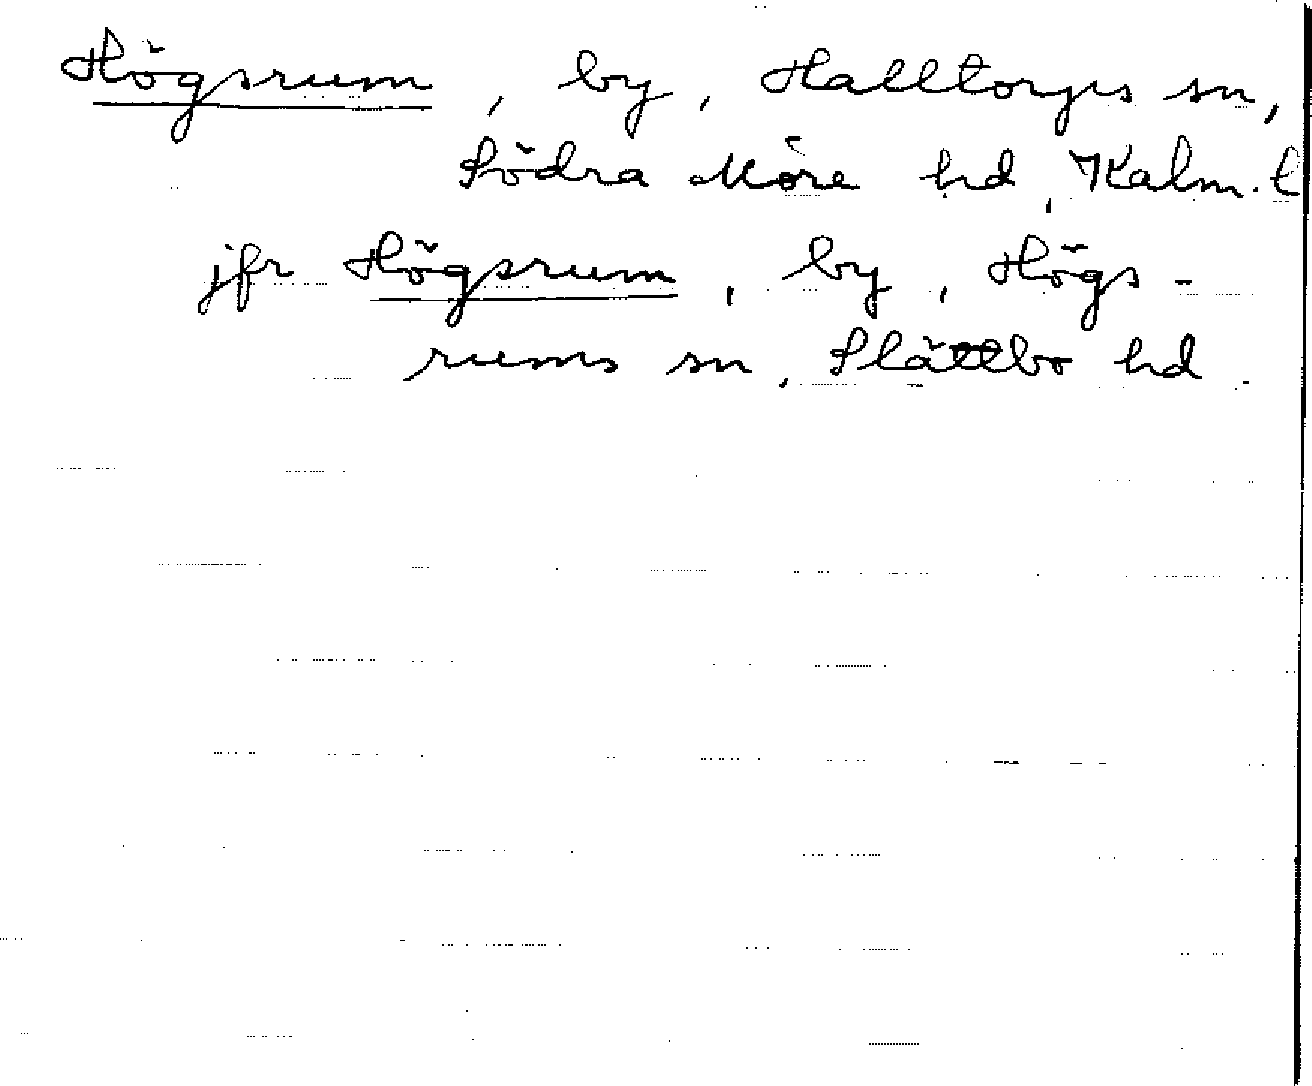 Högsrum, by, Halltorps sn,
Södra Möre hd, Kalm. l
jfr Högsrum, by, Högs-
rums sn, Slättbo hd.